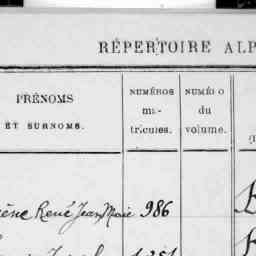 RÉPERTOIRE ALP
PRÉNOMS
ET SURNOMS.
NUMÉROS
ma-
tricules.
NUMÉRO
du
volume.
René Jean Marie 986